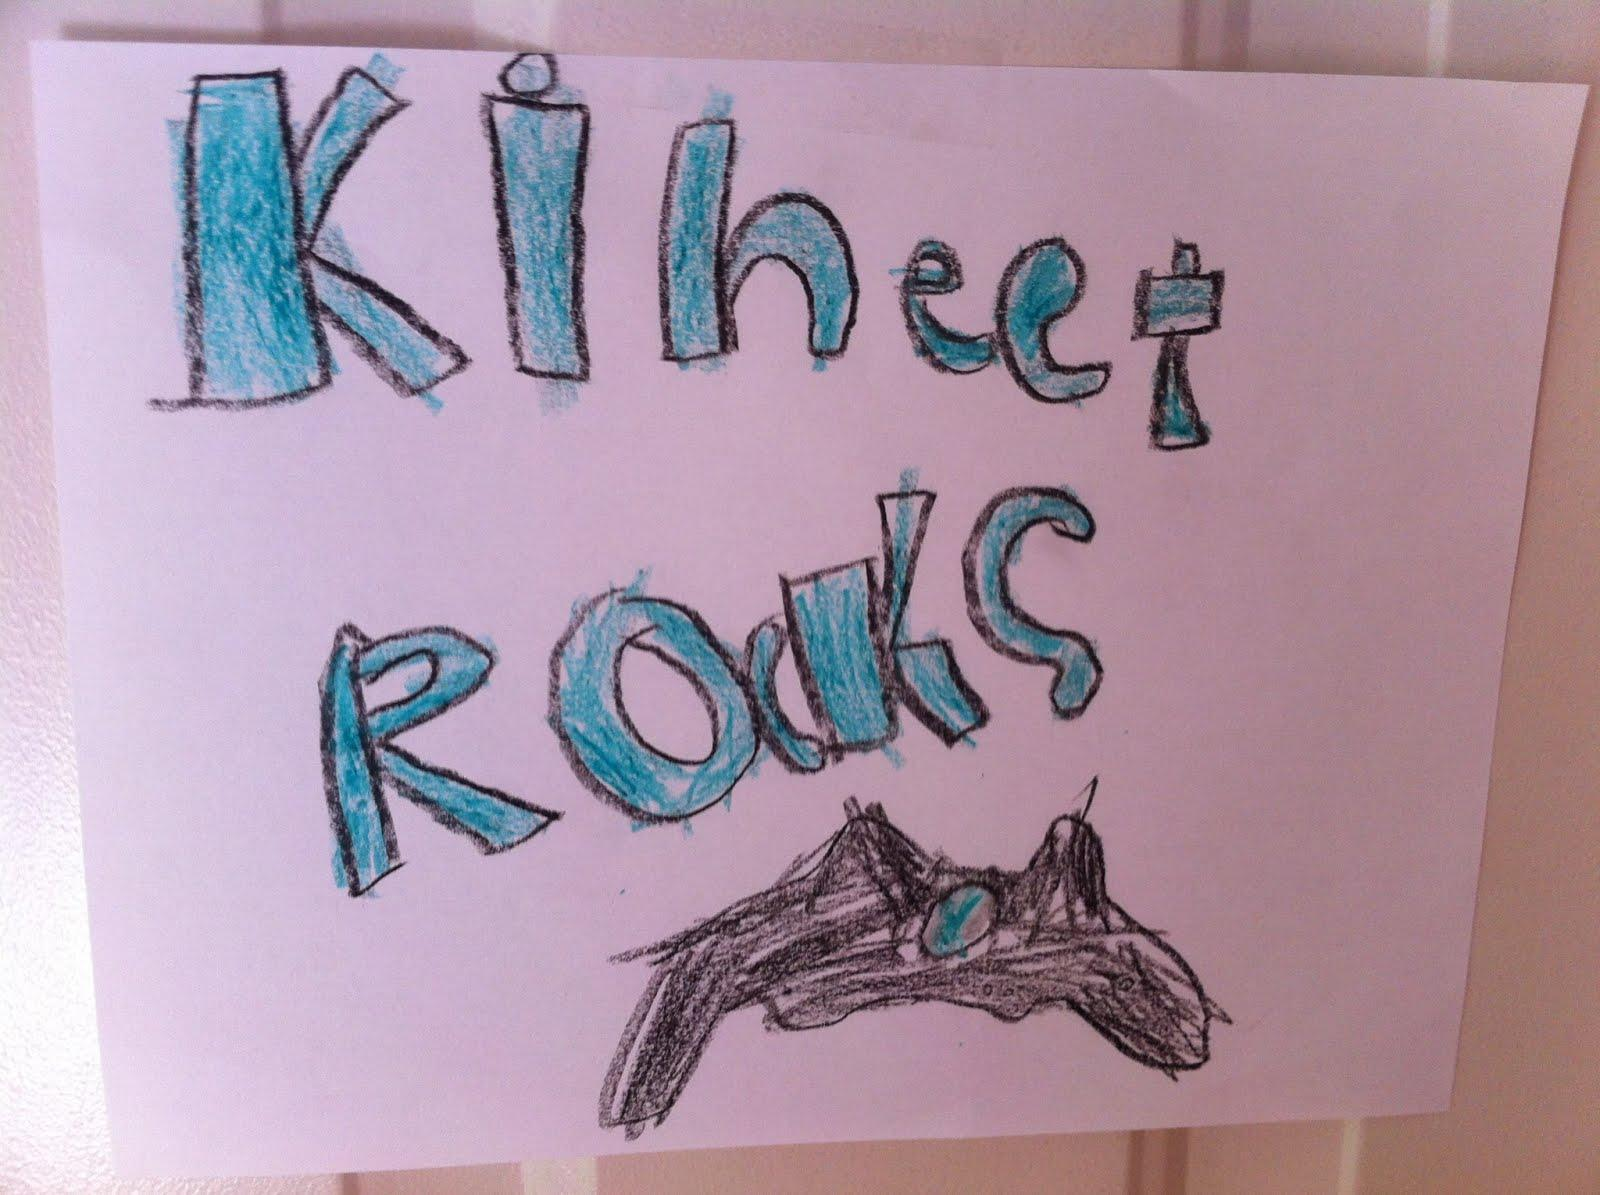 Kiheet
ROcks